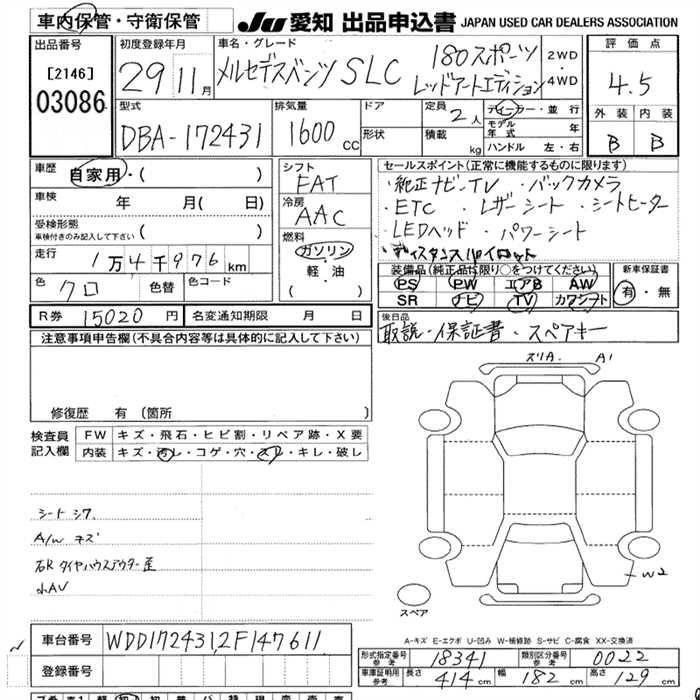 車内保管・守衛保管
JU 愛知 出品申込書 JAPAN USED CAR DEALERS ASSOCIATION
出品番号
[2146]
03086
初度登録年月
29 11月
車名・グレード
メルセデスベンツ SLC
180スポーツ
レッドアートエディション
2WD
4WD
評価点
4.5
外装 内装
B B
型式
DBA-172431
排気量
1600 cc
ドア
形状
定員
2人
積載
kg
ディーラー・並行
モデル年式 年
ハンドル 左・右
車歴
自家用・( )
車検 年 月( 日)
受検形態
車検付きのみ記入して下さい ( )
走行
1万4千976km
色
クロ
色替
色コード
シフト
FAT
冷房
AAC
燃料
ガソリン
・軽・油
( ・ )
セールスポイント(正常に機能するものに限ります)
・純正ナビ・TV ・バックカメラ
・ETC ・レザーシート ・シートヒーター
・LEDヘッド ・パワーシート
・ディスタンスパイロット
装備品(純正品に限り○をつけてください)
PS PW エアB AW
SR ナビ TV カワシート
新車保証書
有・無
R券 15020円
名変通知期限 月 日
後日品
取説・保証書・スペアキー
注意事項申告欄(不具合内容等は具体的に記入して下さい)
修復歴 有(箇所 )
検査員
記入欄
FW キズ・飛石・ヒビ割・リペア跡・X要
内装 キズ・汚レ・コゲ・穴・スレ・キレ・破レ
シート シワ
A/W キズ
右R タイヤハウスアウター歪
小AV
スリA. A1
W2
スペア
A-キズ E-エクボ U-凹み W-補修跡 S-サビ C-腐食 XX-交換済
車台番号 WDD1724312F147611
登録番号
形式指定番号 参考 18341
類別区分番号 参考 0022
車庫証明用 参考 長さ 414cm 幅 182cm 高さ 129cm